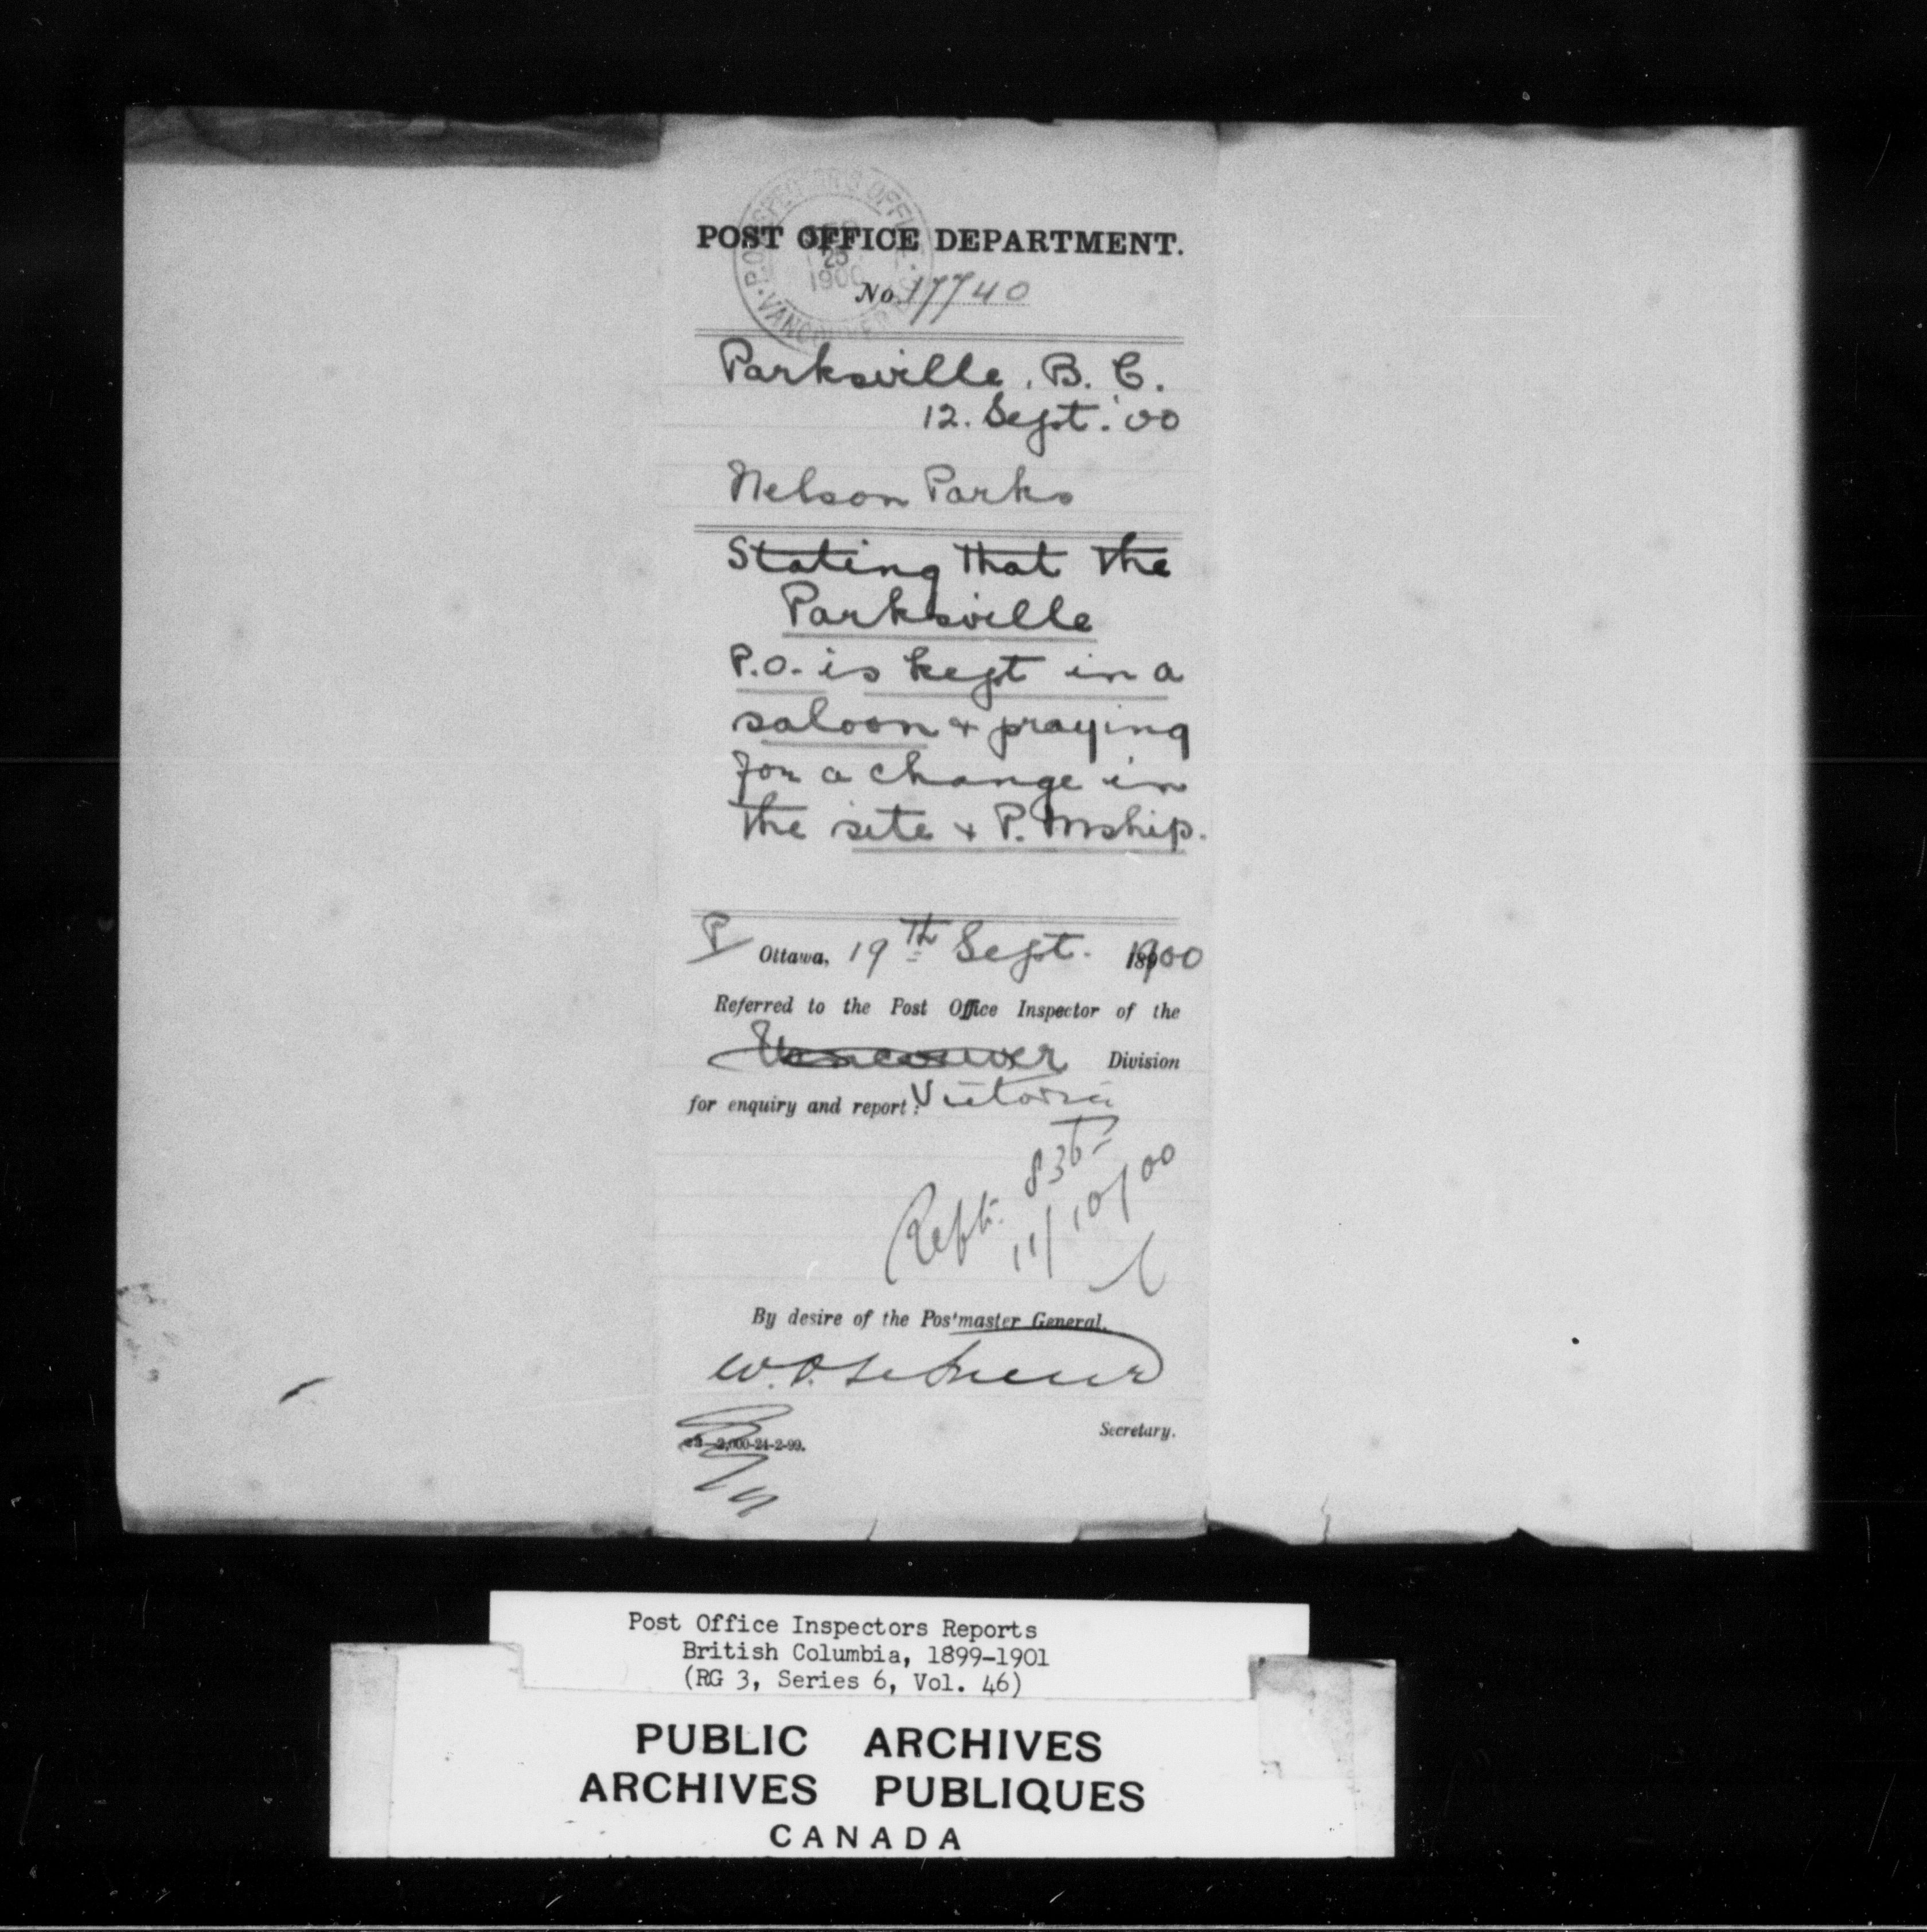 P.O. INSPECTOR'S OFFICE
SEP
25
1900
VANCOUVER B.C.
POST OFFICE DEPARTMENT.
No 17740
Parksville, B. C.
12. Sept. '00
Nelson Parks
Stating that the
Parksville
P.O. is kept in a
saloon & praying
for a change in
the site & P. Mship.
P
Ottawa, 19th Sept. 1900
Referred to the Post Office Inspector of the
Vancouver Division
for enquiry and report: Victoria
Rept.
11/10/00
By desire of the Postmaster General.
Secretary.
2,000-24-2-99.
Post Office Inspectors Reports
British Columbia, 1899-1901
(RG 3, Series 6, Vol. 46)
PUBLIC ARCHIVES
ARCHIVES PUBLIQUES
CANADA